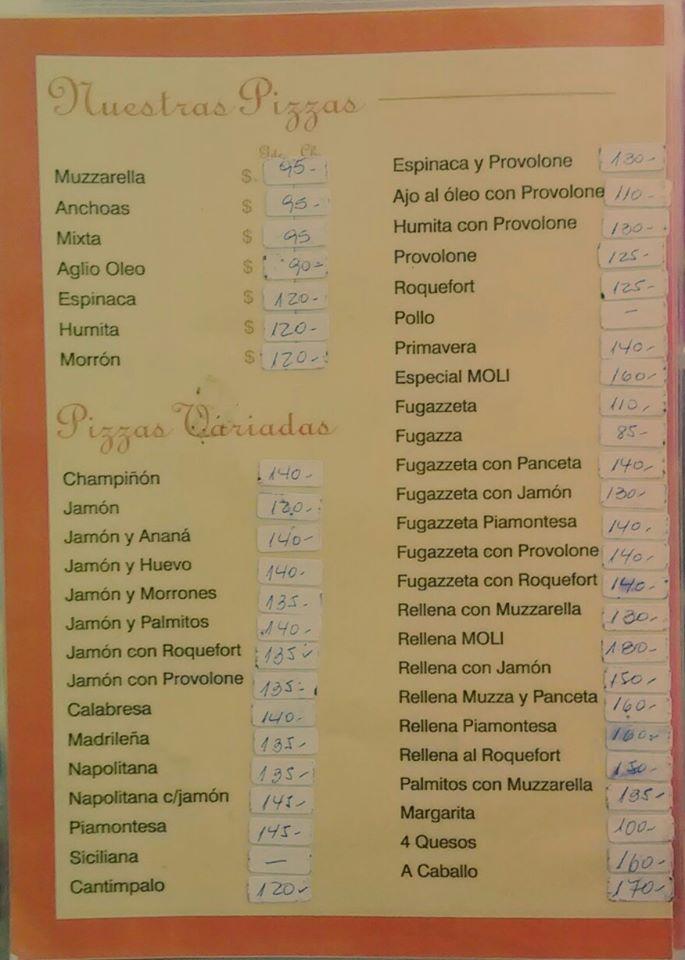 Nuestras Pizzas
Gde. Ch.
Muzzarella $ 95-
Anchoas $ 95-
Mixta $ 95
Aglio Oleo $ 90-
Espinaca $ 120-
Humita $ 120-
Morrón $ 120-
Pizzas Variadas
Champiñón 140-
Jamón 120-
Jamón y Ananá 140-
Jamón y Huevo 140-
Jamón y Morrones 135-
Jamón y Palmitos 140-
Jamón con Roquefort 135-
Jamón con Provolone 135-
Calabresa 140-
Madrileña 135-
Napolitana 135-
Napolitana c/jamón 145-
Piamontesa 145-
Siciliana —
Cantimpalo 120-
Espinaca y Provolone 130-
Ajo al óleo con Provolone 110-
Humita con Provolone 130-
Provolone 125-
Roquefort 125-
Pollo —
Primavera 140-
Especial MOLI 160-
Fugazzeta 110-
Fugazza 85-
Fugazzeta con Panceta 140-
Fugazzeta con Jamón 130-
Fugazzeta Piamontesa 140-
Fugazzeta con Provolone 140-
Fugazzeta con Roquefort 140-
Rellena con Muzzarella 130-
Rellena MOLI 180-
Rellena con Jamón 150-
Rellena Muzza y Panceta 160-
Rellena Piamontesa 160-
Rellena al Roquefort 150-
Palmitos con Muzzarella 135-
Margarita 100-
4 Quesos 160-
A Caballo 170-